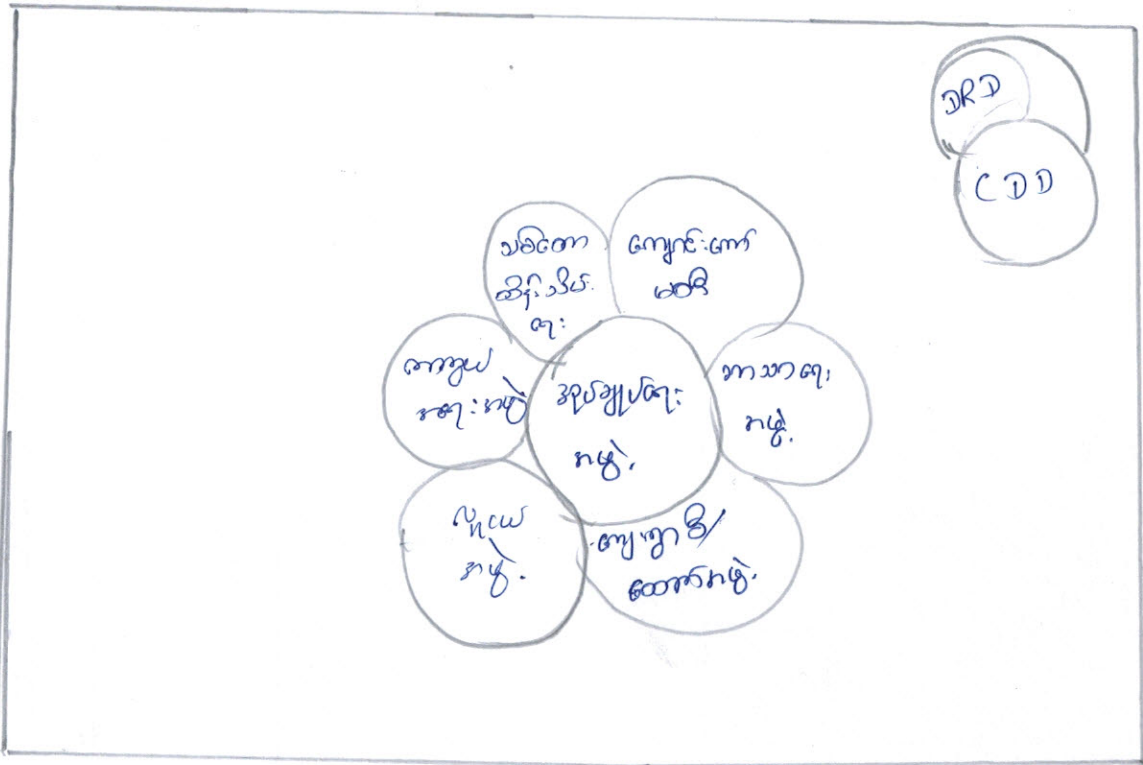 DRD
CDD
သစ်တော
ထိန်းသိမ်း
ရေး
ကျောင်းကော်
မတီ
ကာကွယ်
အရေးအဖွဲ့
အုပ်ချုပ်ရေး
အဖွဲ့
ဘာသာရေး
အဖွဲ့
လူငယ်
အဖွဲ့
ကျေးရွာစီ/
ထောက်အဖွဲ့